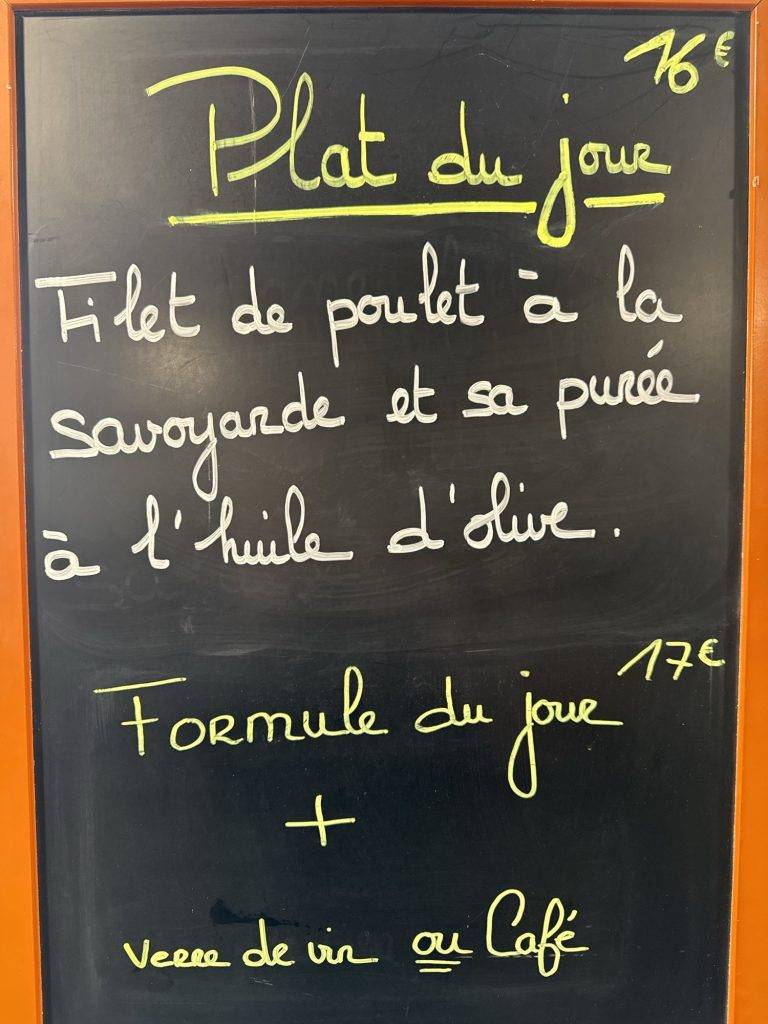 16€
Plat du jour
Filet de poulet à la
savoyarde et sa purée
à l'huile d'olive.
17€
Formule du jour
+
verre de vin ou Café